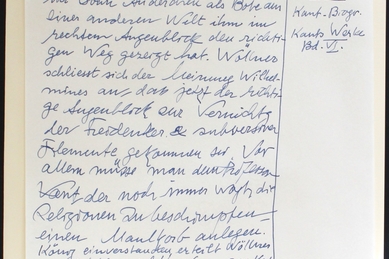 einer anderen Welt ihm im
rechten Augenblick den richti-
gen Weg gezeigt hat. Wöllner
schliesst sich der Meinung Wilhel-
mines an, dass jetzt der richti-
ge Augenblick zur Vernichtg
der Freidenker & subversiver
Elemente gekommen sei. Vor
allem müsse man dem Professor
Kant, der noch immer wagt, die
Religionen zu beschimpfen
einen Maulkorb anlegen.
König einverstanden, erteilt Wöllner
Kant-Biogr.
Kants Werke
Bd. VI.